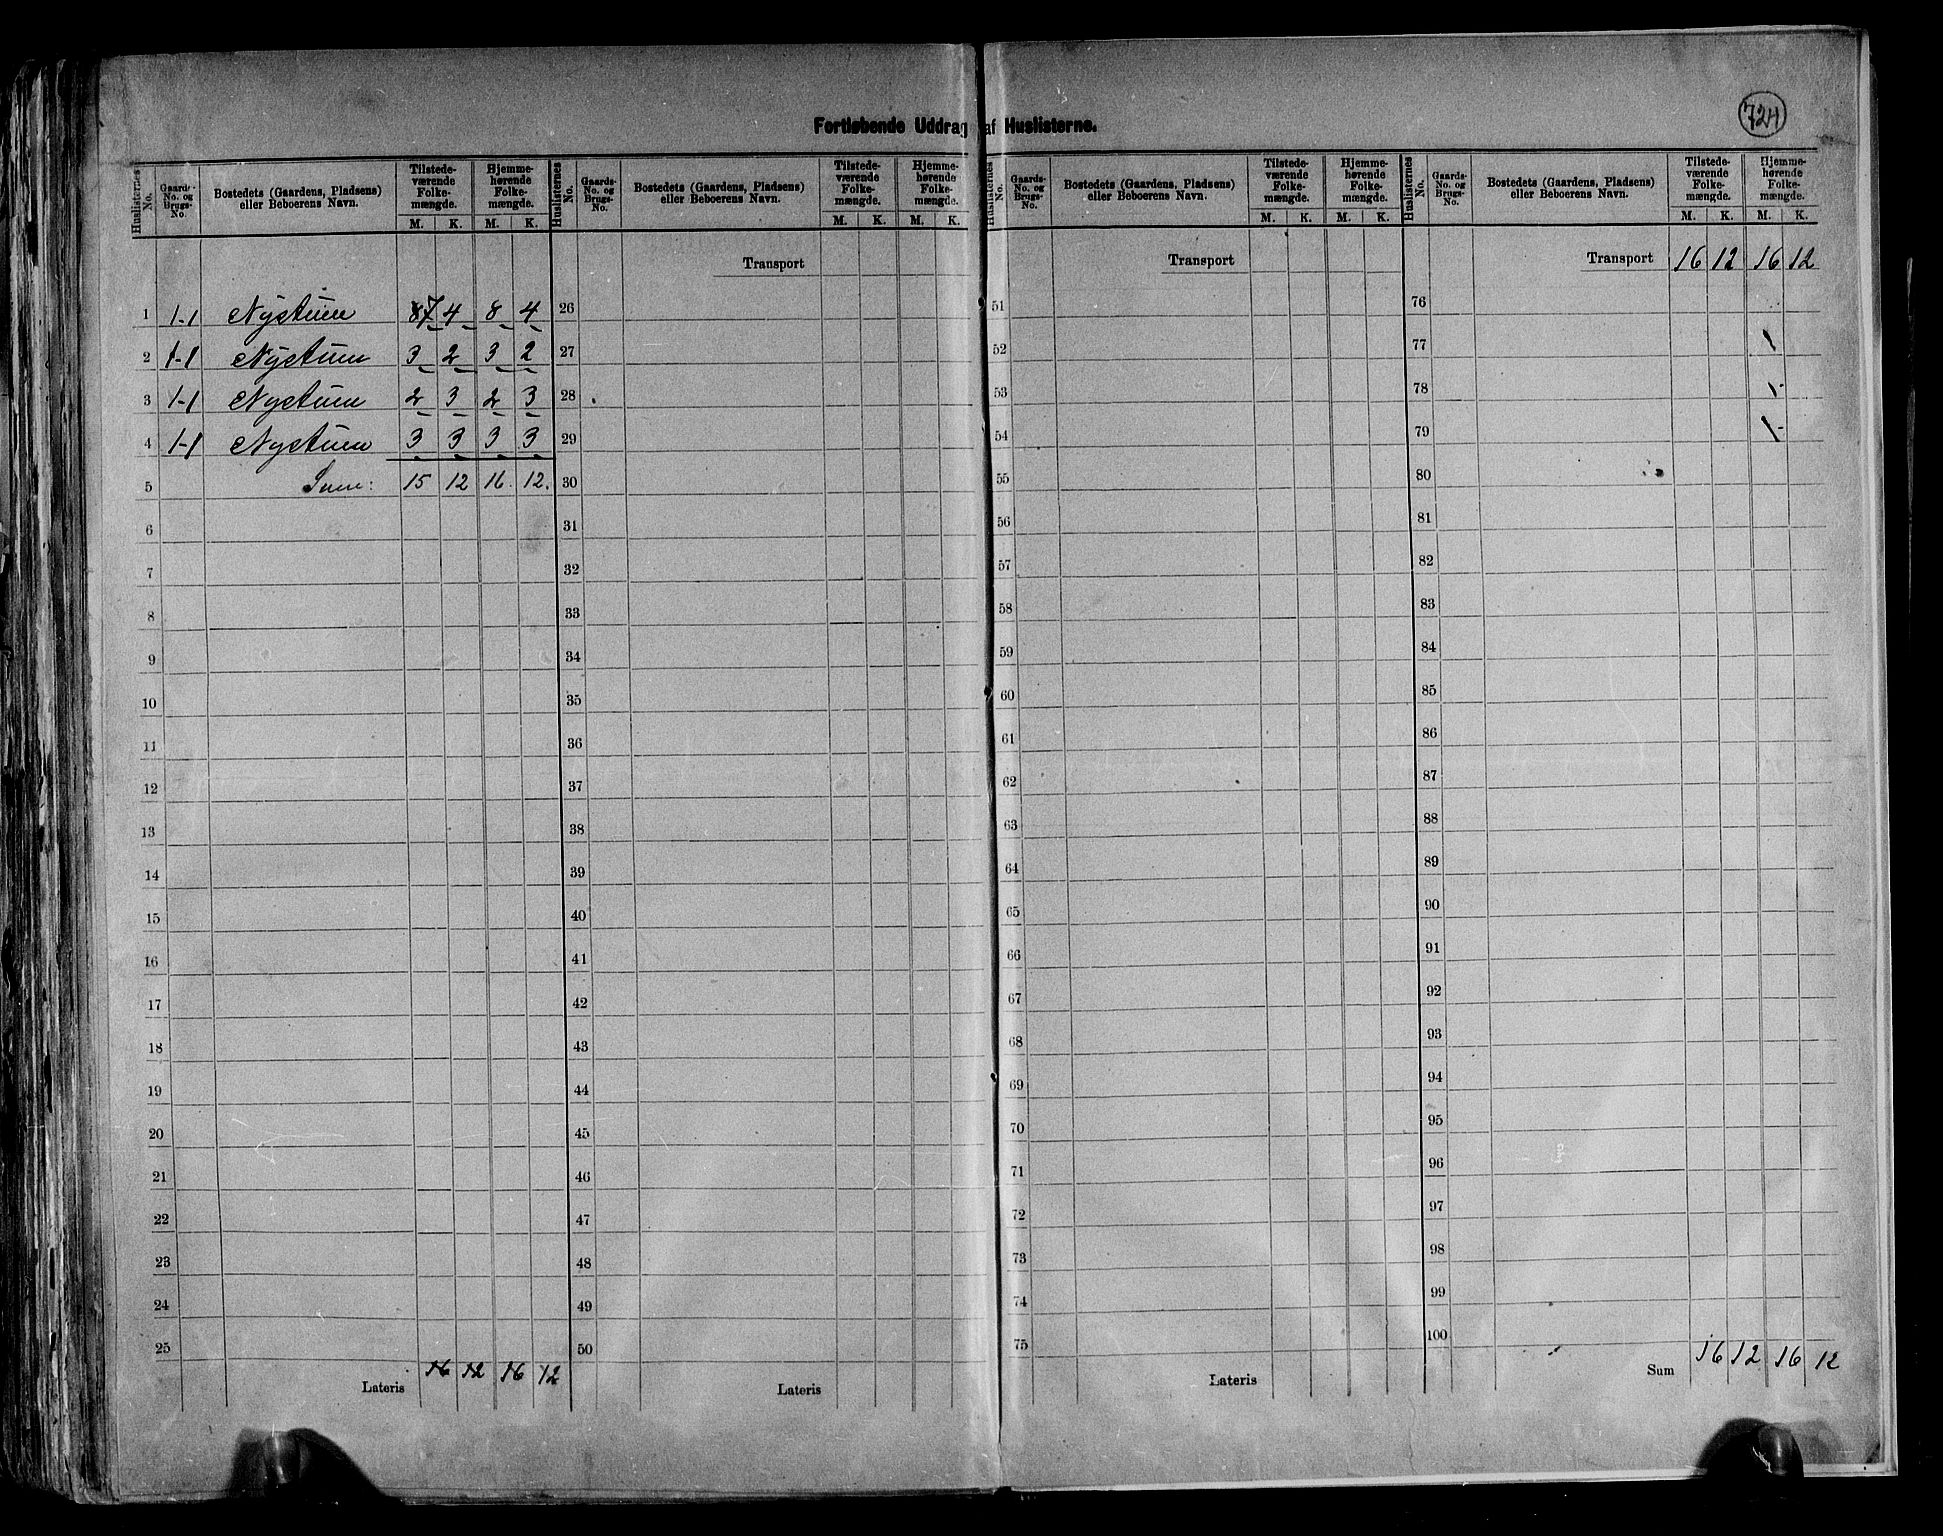 724
Fortløbende Uddrag af Huslisterne.
Huslisternes No. Gaards-No. og Brugs-No. Bostedets (Gaardens, Pladsens) eller Beboerens Navn. Tilstedeværende Folkemængde. M. K. Hjemmehørende Folkemængde. M. K.
1 1-1 Nystuen 87 4 8 4
2 1-1 Nystuen 3 2 3 2
3 1-1 Nystuen 2 3 2 3
4 1-1 Nystuen 3 3 3 3
5 Sum: 15 12 16. 12.
6
7
8
9
10
11
12
13
14
15
16
17
18
19
20
21
22
23
24
25
Lateris 16 12 16 12
Huslisternes No. Gaards-No. og Brugs-No. Bostedets (Gaardens, Pladsens) eller Beboerens Navn. Tilstedeværende Folkemængde. M. K. Hjemmehørende Folkemængde. M. K.
Transport
26
27
28
29
30
31
32
33
34
35
36
37
38
39
40
41
42
43
44
45
46
47
48
49
50
Lateris
Huslisternes No. Gaards-No. og Brugs-No. Bostedets (Gaardens, Pladsens) eller Beboerens Navn. Tilstedeværende Folkemængde. M. K. Hjemmehørende Folkemængde. M. K.
Transport
51
52
53
54
55
56
57
58
59
60
61
62
63
64
65
66
67
68
69
70
71
72
73
74
75
Lateris
Huslisternes No. Gaards-No. og Brugs-No. Bostedets (Gaardens, Pladsens) eller Beboerens Navn. Tilstedeværende Folkemængde. M. K. Hjemmehørende Folkemængde. M. K.
Transport 16 12 16 12
76
77
78
79
80
81
82
83
84
85
86
87
88
89
90
91
92
93
94
95
96
97
98
99
100
Sum 16 12 16 12